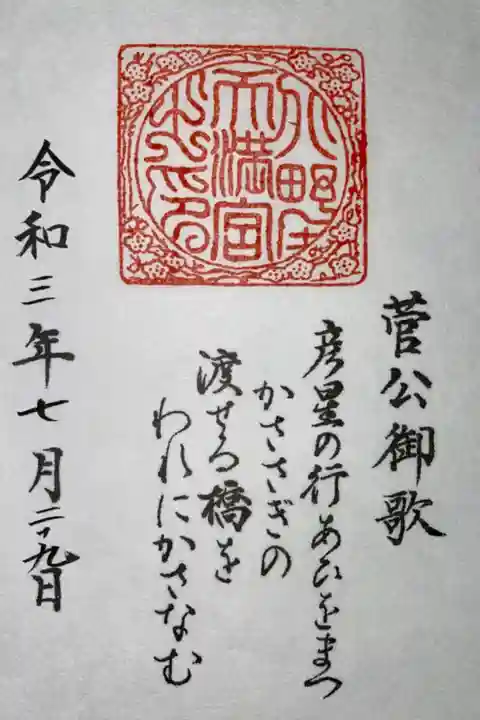 天満宮
之印
菅公御歌
彦星の行あひをまつ
かささぎの
渡せる橋を
われにかさなむ
令和三年七月二十九日